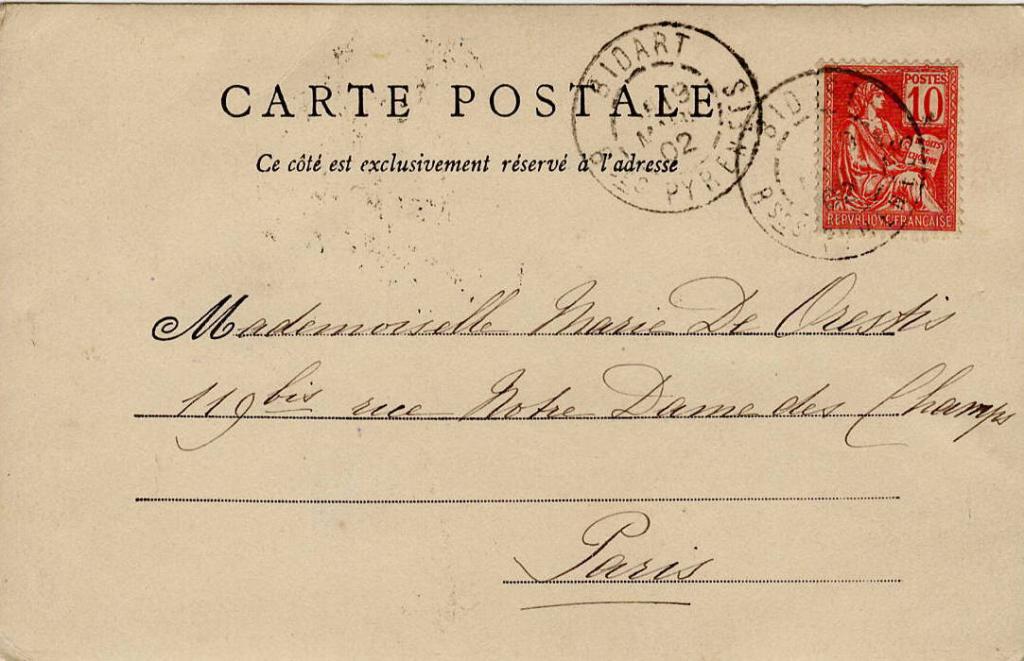 CARTE POSTALE
Ce côté est exclusivement réservé à l'adresse
BIDART
MAI
02
BSES PYRENEES
POSTES
10
DROITS DE L'HOMME
REPVBLIQVE FRANCAISE
Mademoiselle Marie De Orestis
119bis rue Notre Dame des Champs
Paris